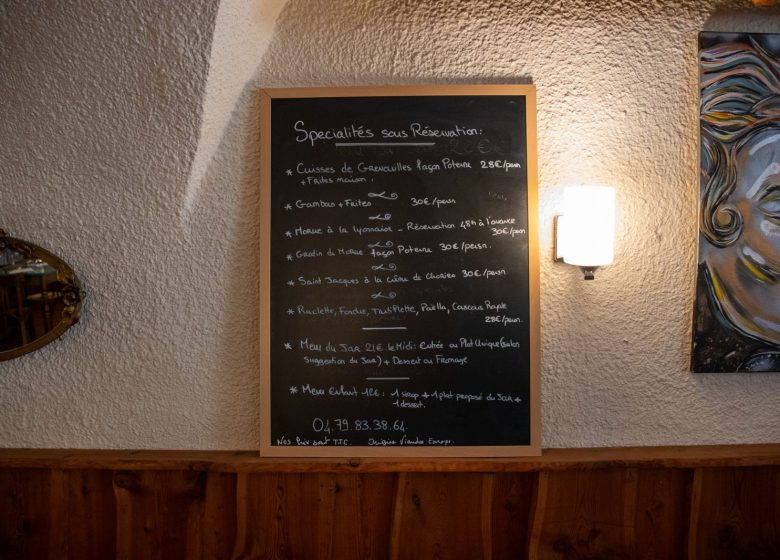 Specialités sous Réservation:
* Cuisses de Grenouilles façon Poterne 28€/persn
+ Frites maison.
* Gambas + Frites 30€/persn
* Morue à la Lyonnaise - Réservation 48h à l'avance
30€/persn
* Gratin de Morue façon Poterne 30€/persn.
* Saint Jacques à la crème de Chorizo 30€/persn.
* Raclette, Fondue, Tartiflette, Paëlla, Couscous Royale
28€/persn.
* Menu du Jour 21€ le Midi: Entrée ou Plat Unique (selon
suggestion du Jour) + Dessert ou Fromage
* Menu Enfant 12€: 1 sirop + 1 plat proposé du Jour +
1 dessert.
04.79.83.38.64.
Nos Prix sont T.T.C. Origine Viandes Europe.